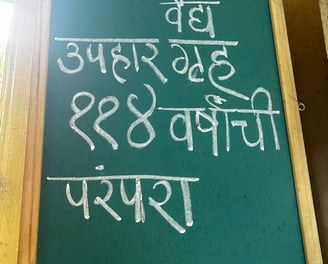 वैद्य
उपहार गृह
११४ वर्षाची
परंपरा